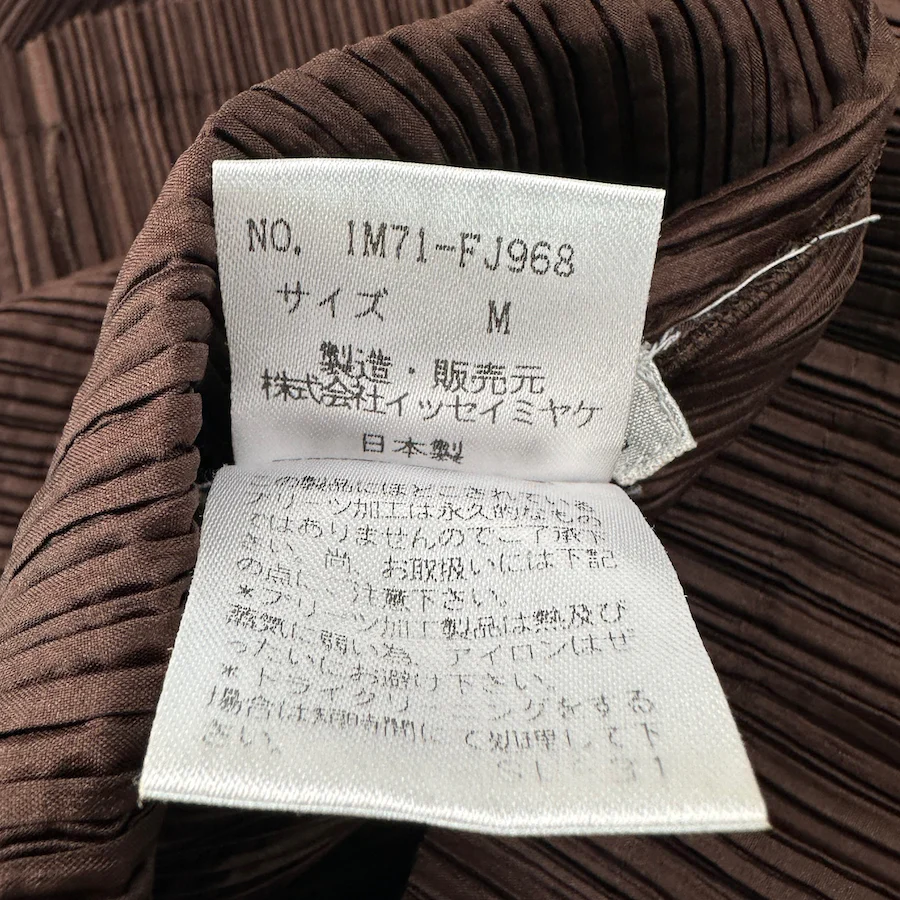 NO. IM71-FJ968
サイズ M
製造・販売元
株式会社イッセイミヤケ
日本製
この製品にほどこされている
プリーツ加工は永久的なもの
ではありませんのでご了承下
さい。尚、お取扱いには下記
の点にご注意下さい。
*プリーツ加工製品は熱及び
蒸気に弱い為、アイロンはぜ
ったいにお避け下さい。
*ドライクリーニングをする
場合は短時間にて処理して下
さい。